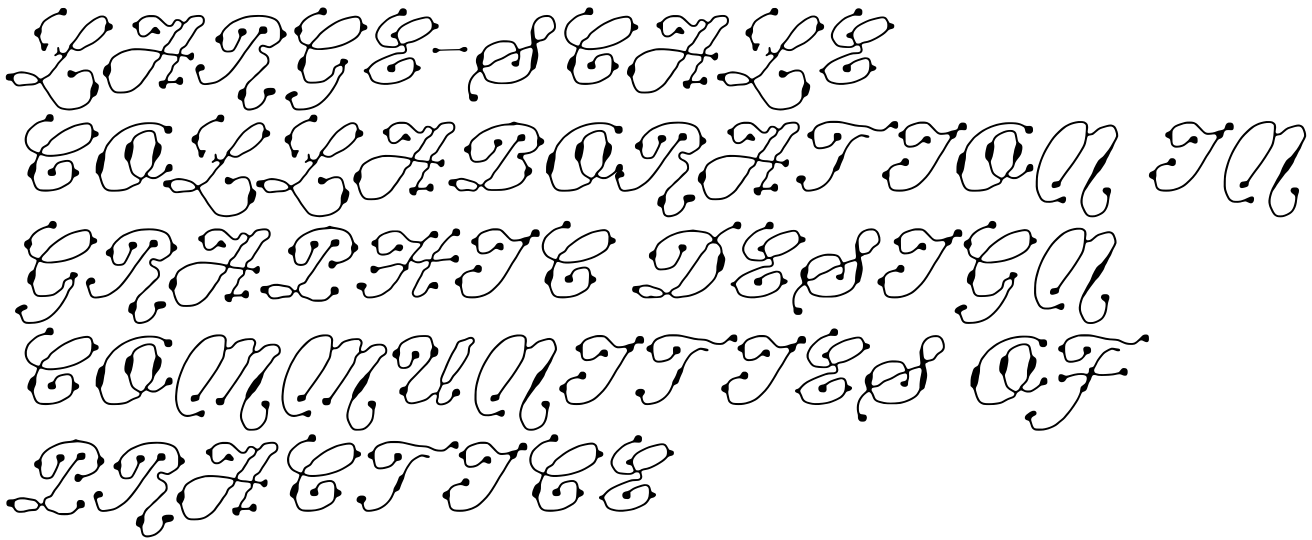 LARGE-SCALE
COLLABORATION IN
GRAPHIC DESIGN
COMMUNITIES OF
PRACTICE